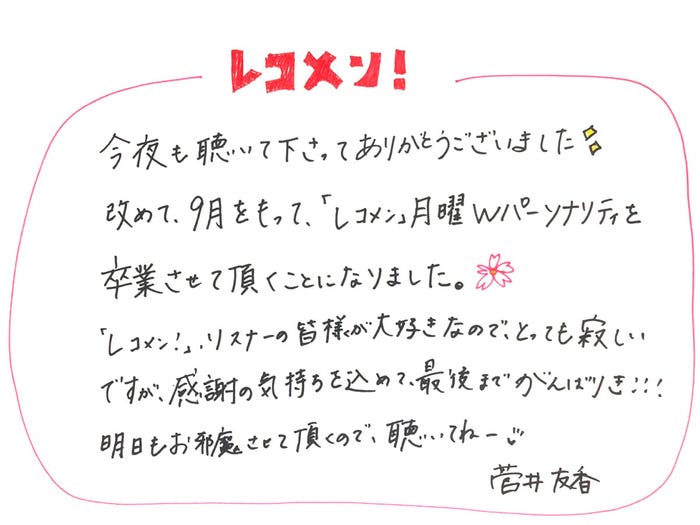 レコメン!
今夜も聴いて下さってありがとうございました
改めて、9月をもって、「レコメン」月曜Wパーソナリティを
卒業させて頂くことになりました。
「レコメン!」、リスナーの皆様が大好きなので、とっても寂しい
ですが、感謝の気持ちを込めて、最後までがんばりき!!!
明日もお邪魔させて頂くので、聴いてねー
菅井友香